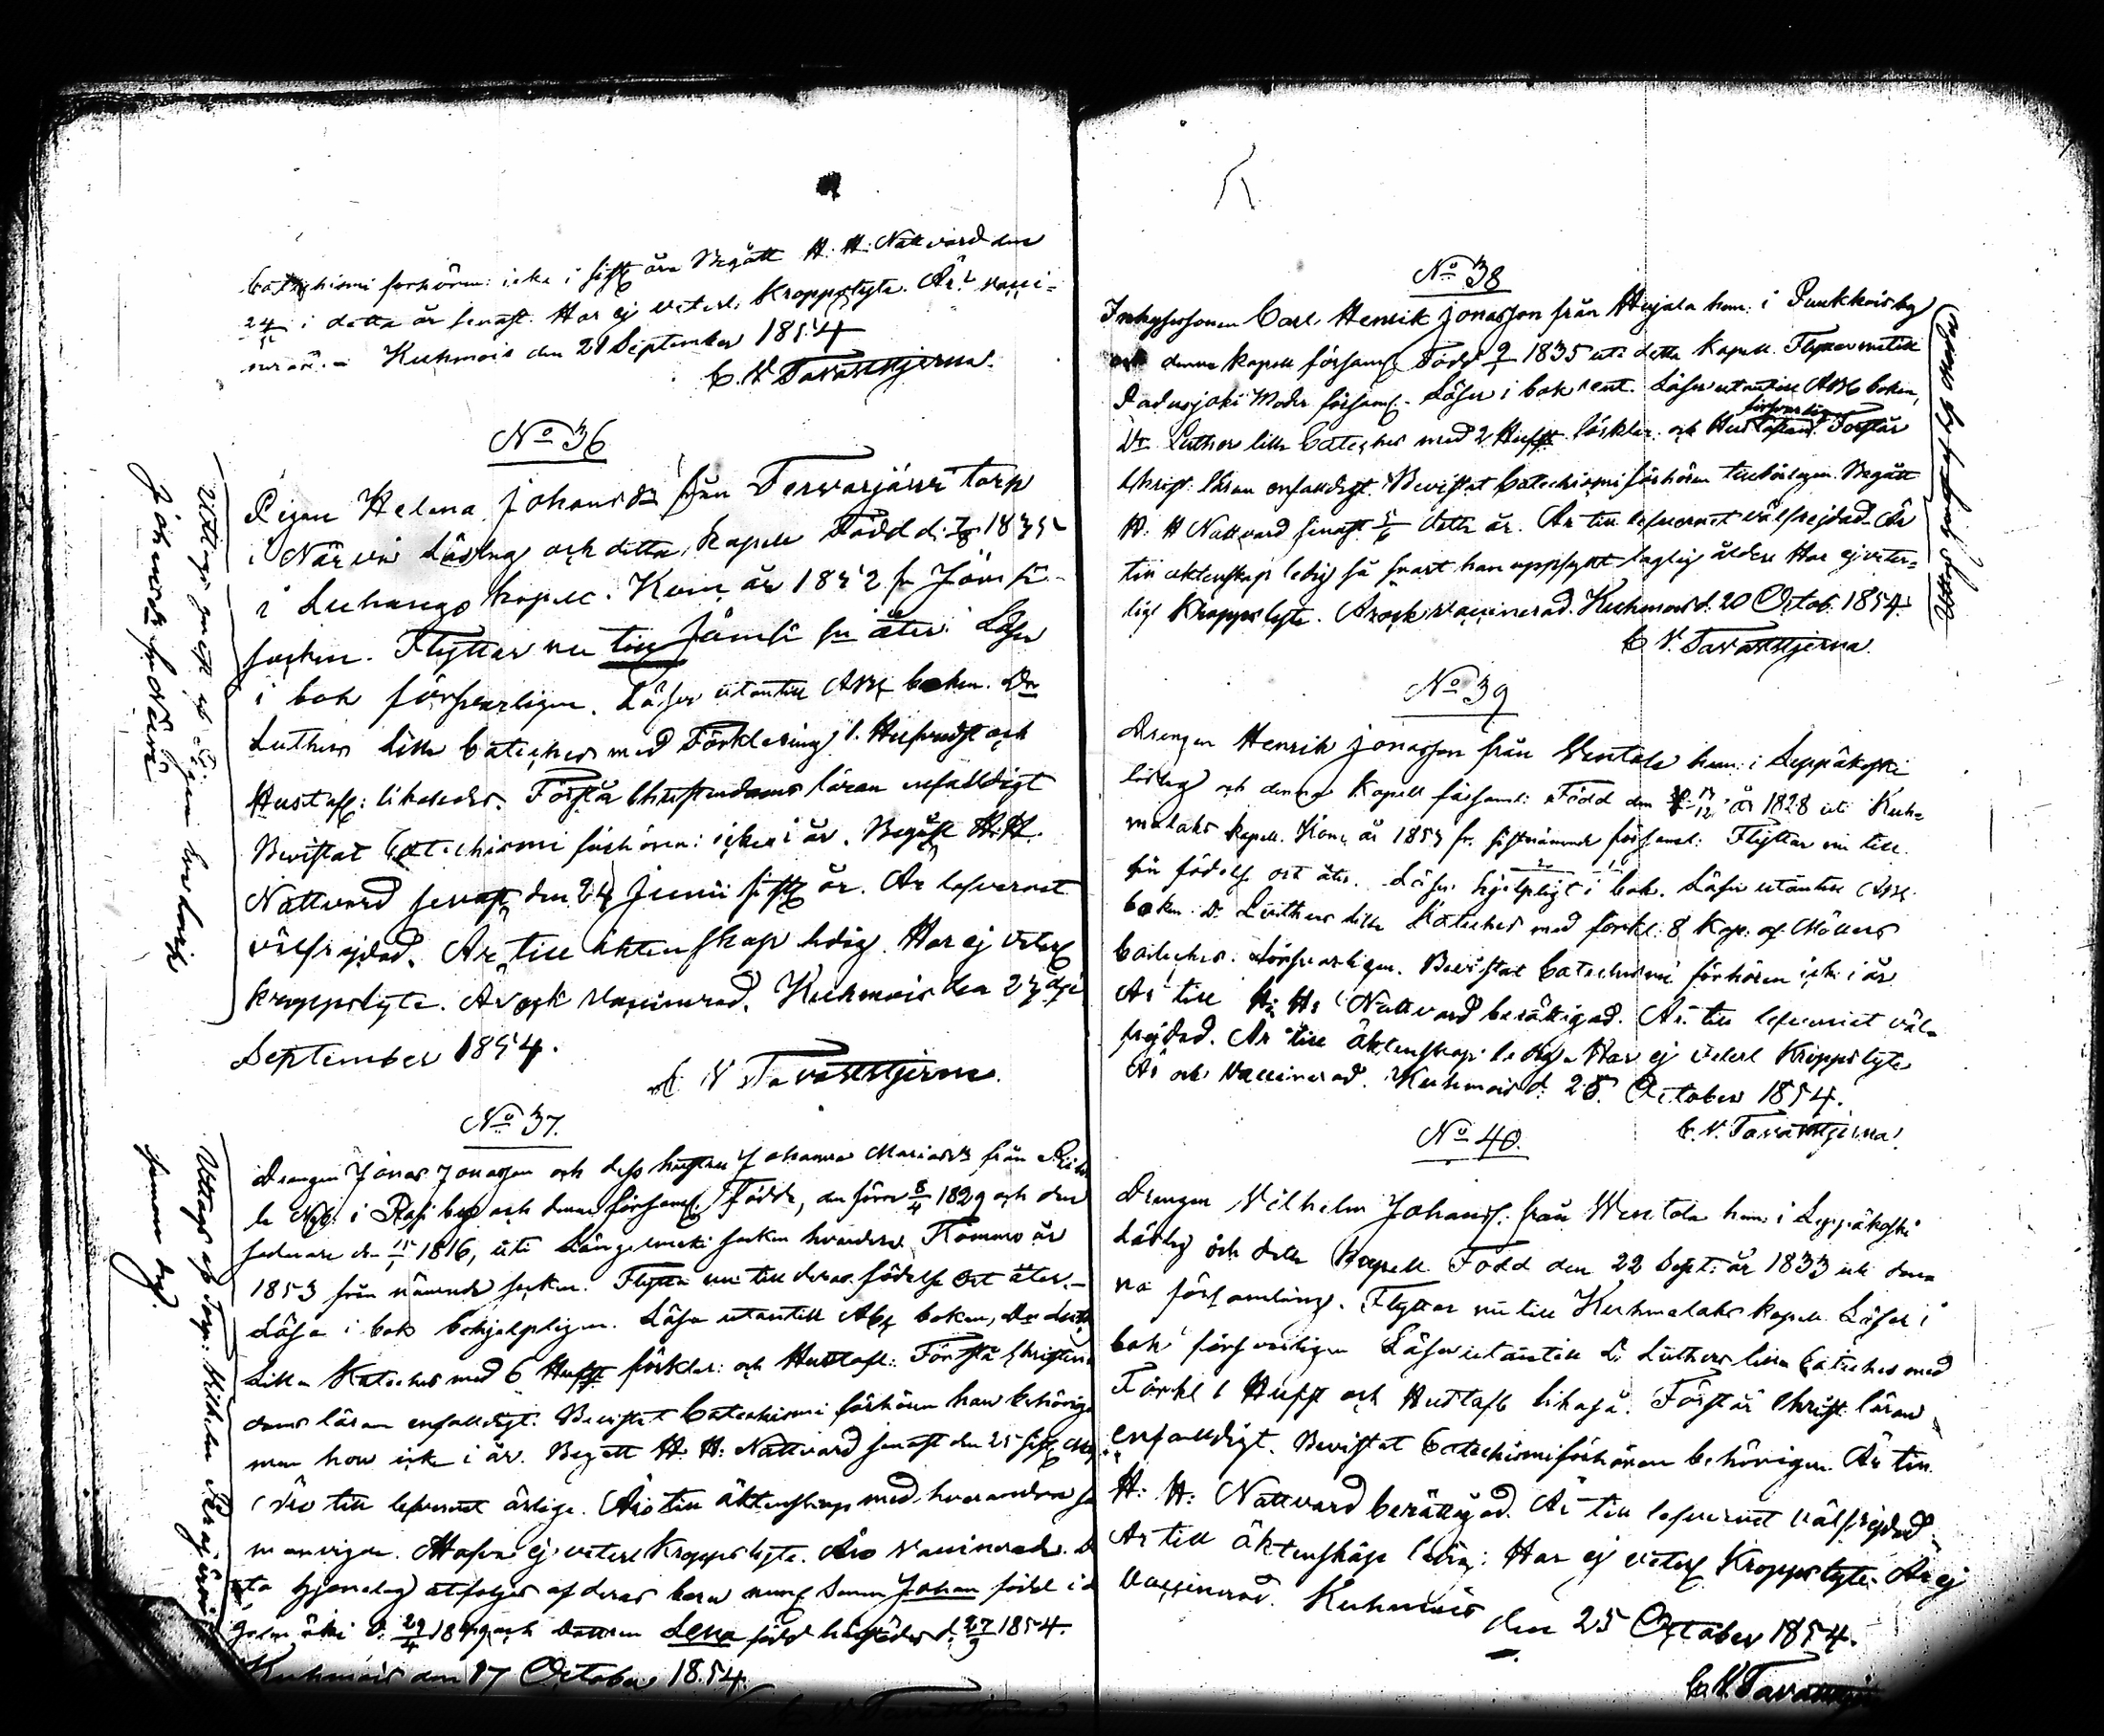 Catechismi förhören: icke i sistl åra Begått H: H: Nattvard den
24 i detta år senast. Har ej veterl. Kroppslyte. Är vacci-
nerad. Kuhmois den 21 September 1854
C. V. Tavaststjerna.
No 36
Pigan Helena Johansdr från Terwasjärvi torp
i Närvä Låslag och detta Kapell Född d. 1835
i Luhango Kapell. Kom år 1852 fr Jämsä
socken. Flyttar nu till Jämsä sn åter. Läser
i bok försvarligen. Läser utantill ABC boken. Dr
Luthers Lilla Cateches med Förklaring, o. Hufvudst och
Hustafl: likaledes. Förstår Christendoms läran enfaldigt
Bevistat Catechismi förhören: icke i år. Begått H. H.
Nattvard senast den 24 Junii sistl år. Är lefvernet
välfrejdad. Är till äktenskap ledig. Har ej veterl
kroppslyte. Är ock Vaccinerad. Kuhmois den 23dje
September 1854.
C V Tavaststjerna.
Johansdr fr. ofvan
No 37.
Drengen Jonas Jonasson och dess hustru Johanna Mariasdr från
i by och denna församl: Födde, den förre 8/4 1829 och den
sednare den 1816, uti Längelmäki socken hvardera. Kommo år
1853 från nämnde socken. Flytta nu till deras födelse ort åter.
Läsa i bok behjelpligen. Läsa utantill Abc boken, Dr Luth
Lilla Kateches med 6 Hufst förklar: och Hustafl: Förstå Christen
doms läran enfaldigt. Bevistat Catechismi förhören han behörige
men hon icke i år. Begått H. H: Nattvard senast den 25 sistl
Äro till lefvernet ärlige. Äro till äktenskap med hvarandra
Hafva ej veterl Kroppslyte. Äro Vaccinerade.
åtföljes af deras barn neml Sonen Johan född i
d. 29/4 och dottren Lena född härstädes d. 27/9 1854.
Kuhmois den 17 October 1854.
C V Tavaststjerna
Uttags af Torp: Wilhelm
samma dag.
No 38
Inhysessonen Carl Henrik Jonasson från Hujala hem: i Puukkois by
och denna Kapell församl Född 1835 uti detta Kapell. Flyttar nu till
Padasjoki Moder församl. Läser i bok rent. Läser utantill ABC boken,
Dr Luthers lilla Cateches med 2 Hufst förklar: och Hustaflan försvarligen. Förstår
Christ: läran enfaldigt. Bevistat Catechismi förhören tillbörligen. Begått
H: H Nattvard senast detta år. Är till lefvernet välfrejdad. Är
till äktenskap ledig så snart han uppfyllt laglig ålder. Har ej veter-
ligt Kroppslyte. Är ock vaccinerad. Kuhmois d. 20 Octob. 1854.
C V. Tavaststjerna.
No 39
Drengen Henrik Jonasson från Wentola hem: i Leppäkoski
låslag och denna Kapell församl: Född den år 1828 uti Kuh-
malaks Kapell. Kom år 1853 fr. sistnämnde församl: Flyttar nu till
sin födelse ort åter. Läser hjelpligt i bok. Läser utantill ABC
boken. Dr Luthers lilla Kateches med förkl: 8 Kap: af Möllers
Cateches. försvarligen. Bevistat Catechismi förhören icke i år
Är till H: H: Nattvard berättigad. Är till lefvernet väl-
frejdad. Är till äktenskap ledig. Har ej veterl Kroppslyte
Är ock Vaccinerad. Kuhmois d: 25. October 1854.
C. V. Tavaststjerna!
No 40.
Drengen Vilhelm Johanss: från Wentola hem: i Leppäkoski
Låslag och detta Kapell. Född den 22 Sept: år 1833 uti den-
na församling. Flyttar nu till Kuhmalaks Kapell. Läser i
bok försvarligen Läser utantill Dr Luthers lilla Cateches med
Förkl 1 Hufst och Hustafl likaså. Förstår Christ: läran
enfaldigt. Bevistat Catechismi förhören behörigen. Är till
H: H: Nattvard berättigad. Är till lefvernet välfrejdad
Är till äktenskap ledig: Har ej veterl Kroppslyte. Är ej
Vaccinerad. Kuhmois den 25 October 1854.
C. V. Tavaststje